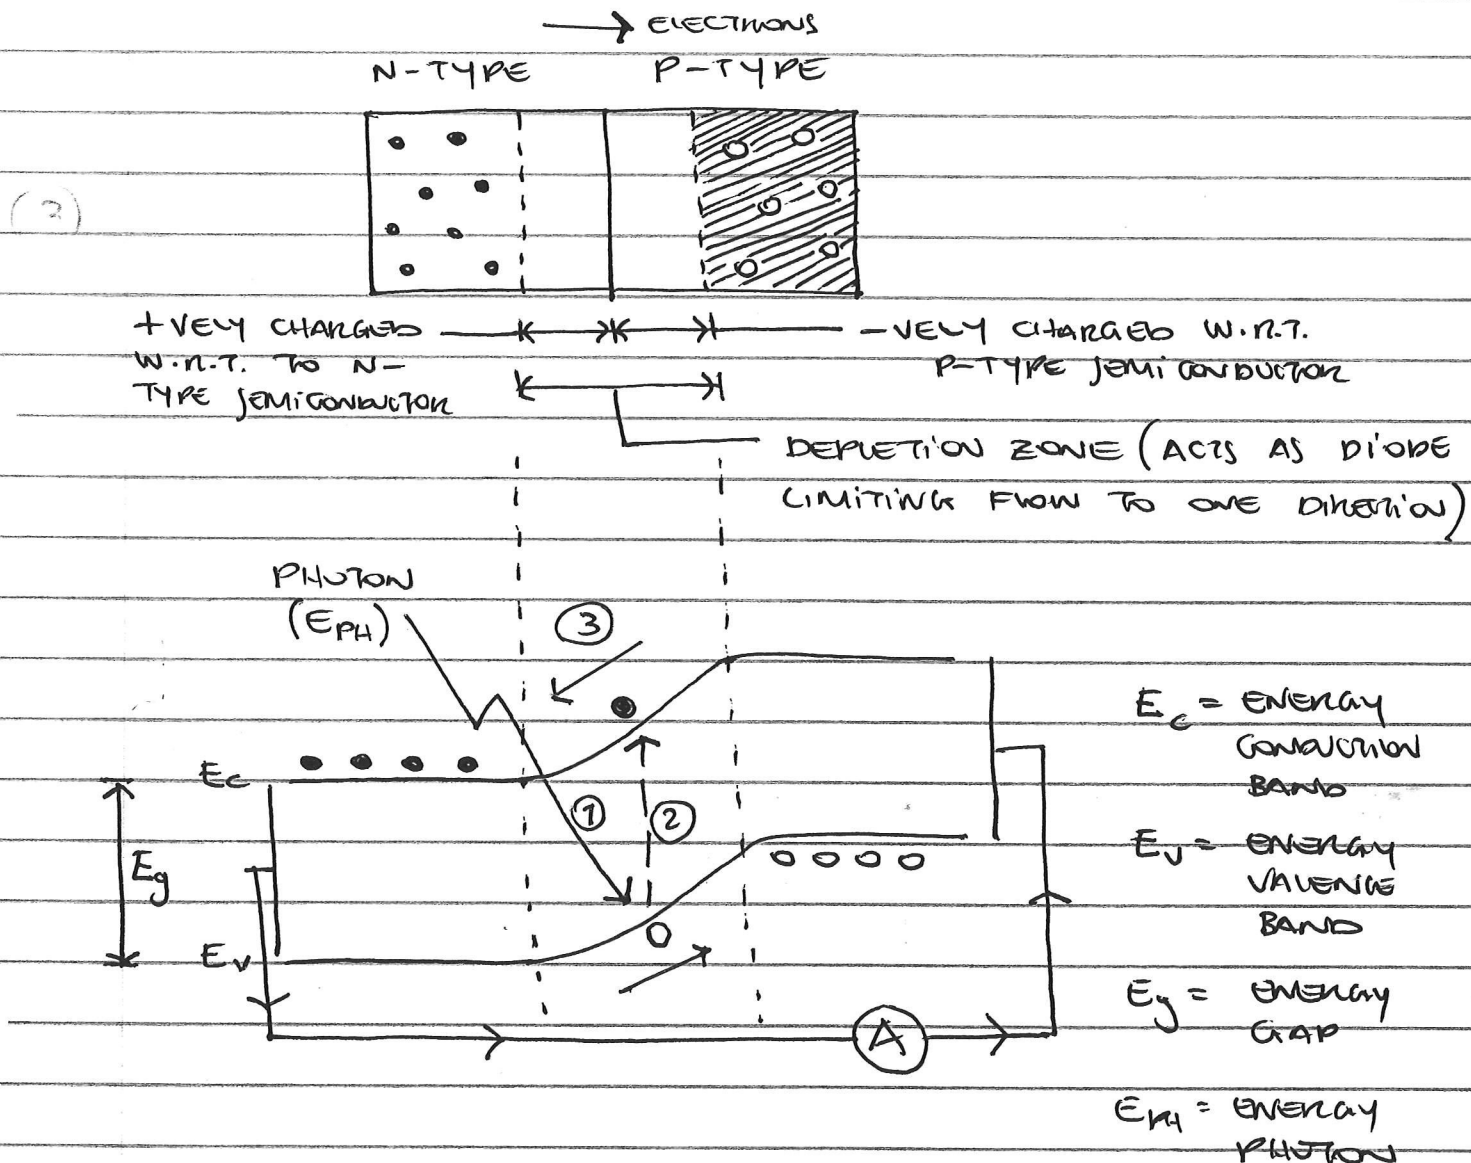 → ELECTRONS
N-TYPE P-TYPE
(2)
+VELY CHARGED
W.R.T. TO N-
TYPE SEMICONDUCTOR
-VELY CHARGED W.R.T.
P-TYPE SEMICONDUCTOR
DEPLETION ZONE (ACTS AS DIODE
LIMITING FLOW TO ONE DIRETION)
PHOTON
(EPH)
3
Ec
1
2
Eg
Ev
A
Ec = ENERGY
CONDUCTION
BAND
Ev = ENERGY
VALENCE
BAND
Eg = ENERGY
GAP
EPH = ENERGY
PHOTON